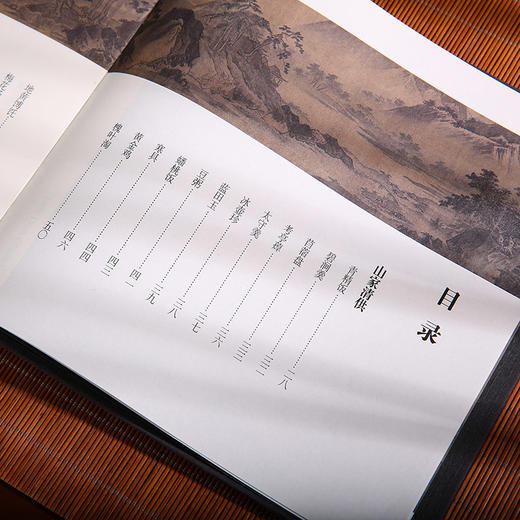 目录
山家清供
青精饭……二八
碧涧羹……三二
苜蓿盘……三三
考亭蔊……三六
太守羹……三七
冰壶珍……三八
蓝田玉……三九
豆粥……四一
蟠桃饭……四二
寒具……四三
黄金鸡……四四
槐叶淘……五〇
地黄馎饦
梅花